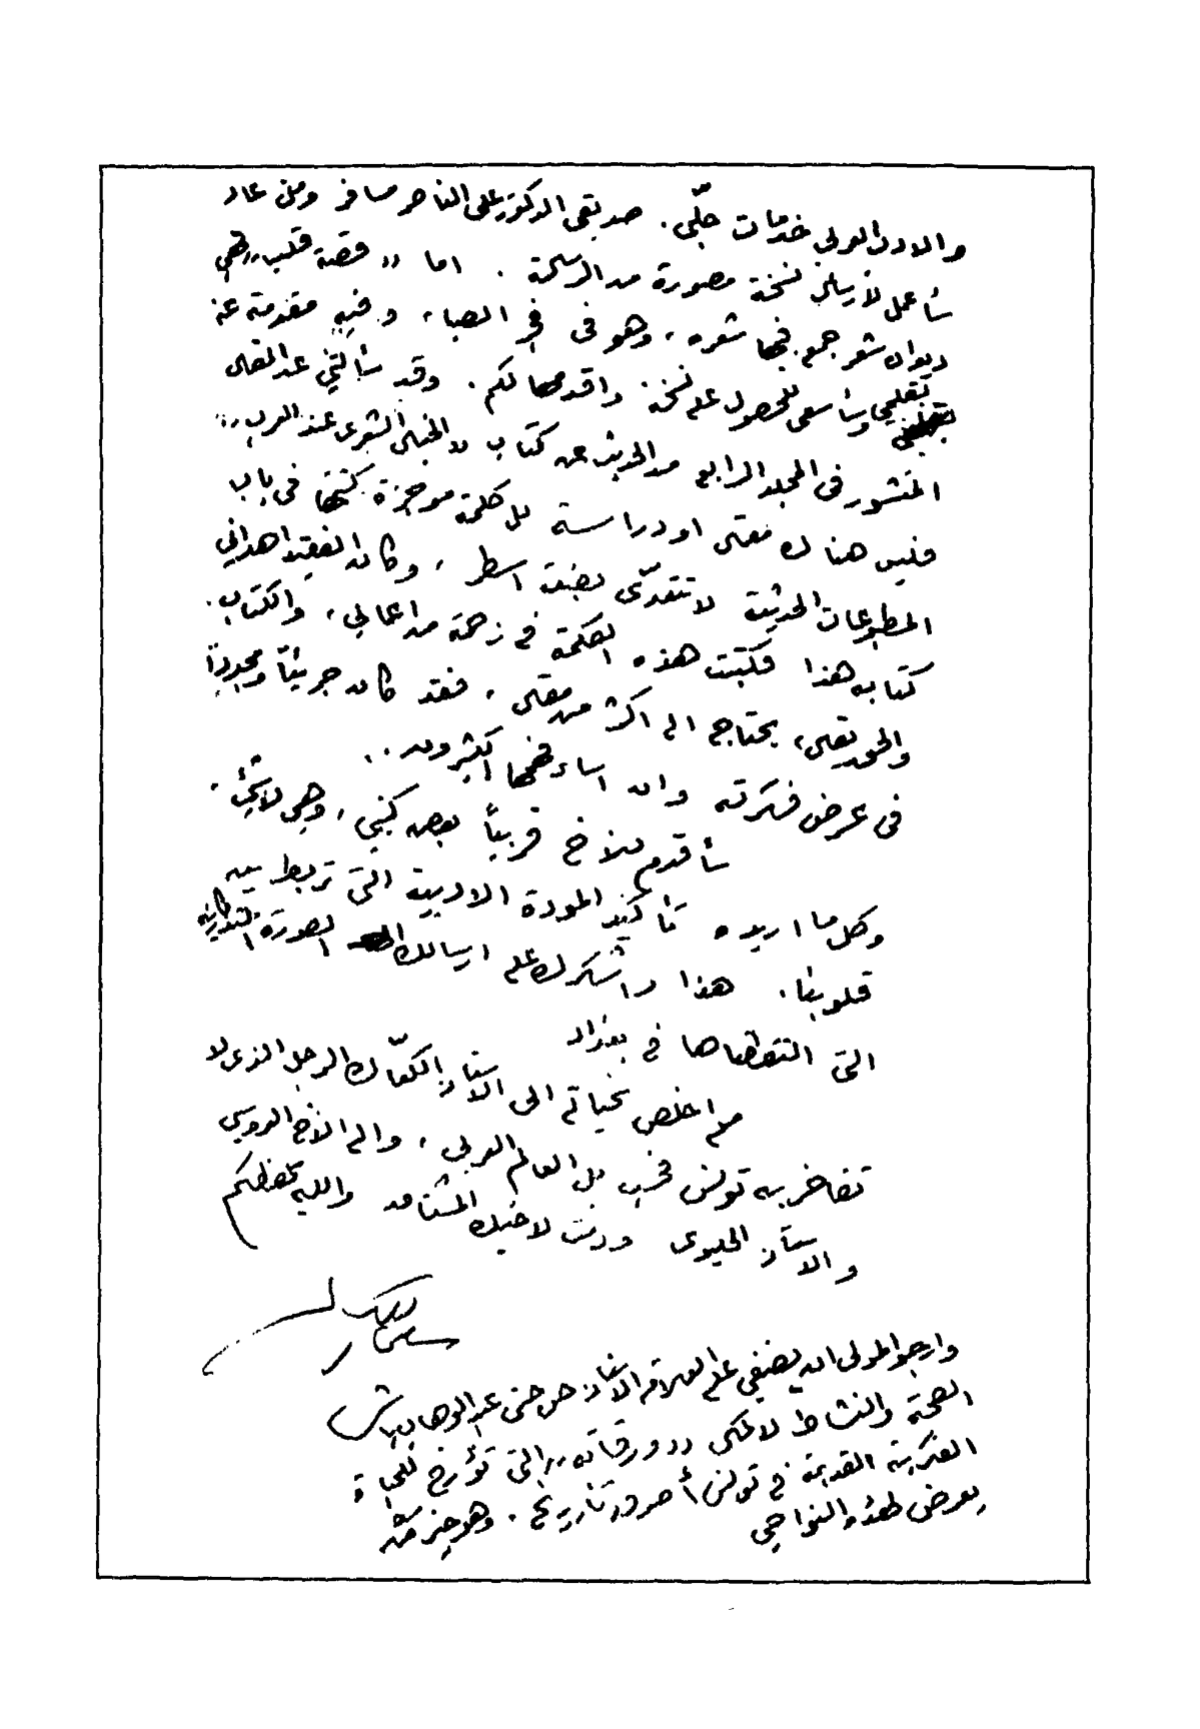 والادب العربي خدمات جلّى. صديقي الدكتور علي الناصر مسافر ومتى عاد
سأعمل لأرسال نسخة مصورة من الرسمة. اما «قصة قلب» فهي
ديوان شعر جمع فيها شعره، وهو في فجر الصبا، وفيه مقدمة عنه
بقلمي وسأسعى للحصول على نسخة واقدمها لكم. وقد سألتني عن المقال
المنشور في المجلد الرابع من الحديث عن كتاب «الخيال الشعري عند العرب»
فليس هناك مقال او دراسة بل كلمة موجزة كتبتها في باب
المطبوعات الحديثة لا تتعدّى بضعة اسطر، وكان الفقيد اهداني
كتابه هذا فكتبت هذه الكلمة في زحمة من اعمالي، والكتاب.
والحق يقال، يحتاج الى اكثر من مقال، فقد كان جريئاً ومجدداً
في عرض فكرته وان اساء فهمها الكثيرون..
سأقدم للاخ قريباً بعض كتبي، وهي لا شيء.
وكل ما اريده تأكيد المودة الادبية التي تربط بين
قلوبنا. هذا واشكرك على ارسالك الصورة التذكارية
التي التقطناها في بغداد
مع اخلص تحياتي الى الاستاذ الكعّاك الرجل الذي لا
تفاخر به تونس فحسب بل العالم العربي، والى الاخ العروسي
والاستاذ الحليوي ودمت لاخيك المشتاق والله يحفظكم
سامي الكيالي
وارجو المولى ان يضفي على العلامة الاستاذ حسن حسني عبد الوهاب باشا
الصحة والنشاط لاكمال «ورقاته» التي تؤرخ للحياة
الفكرية القديمة في تونس أصدق تاريخ. وهو خير من
يعرض لهذه النواحي